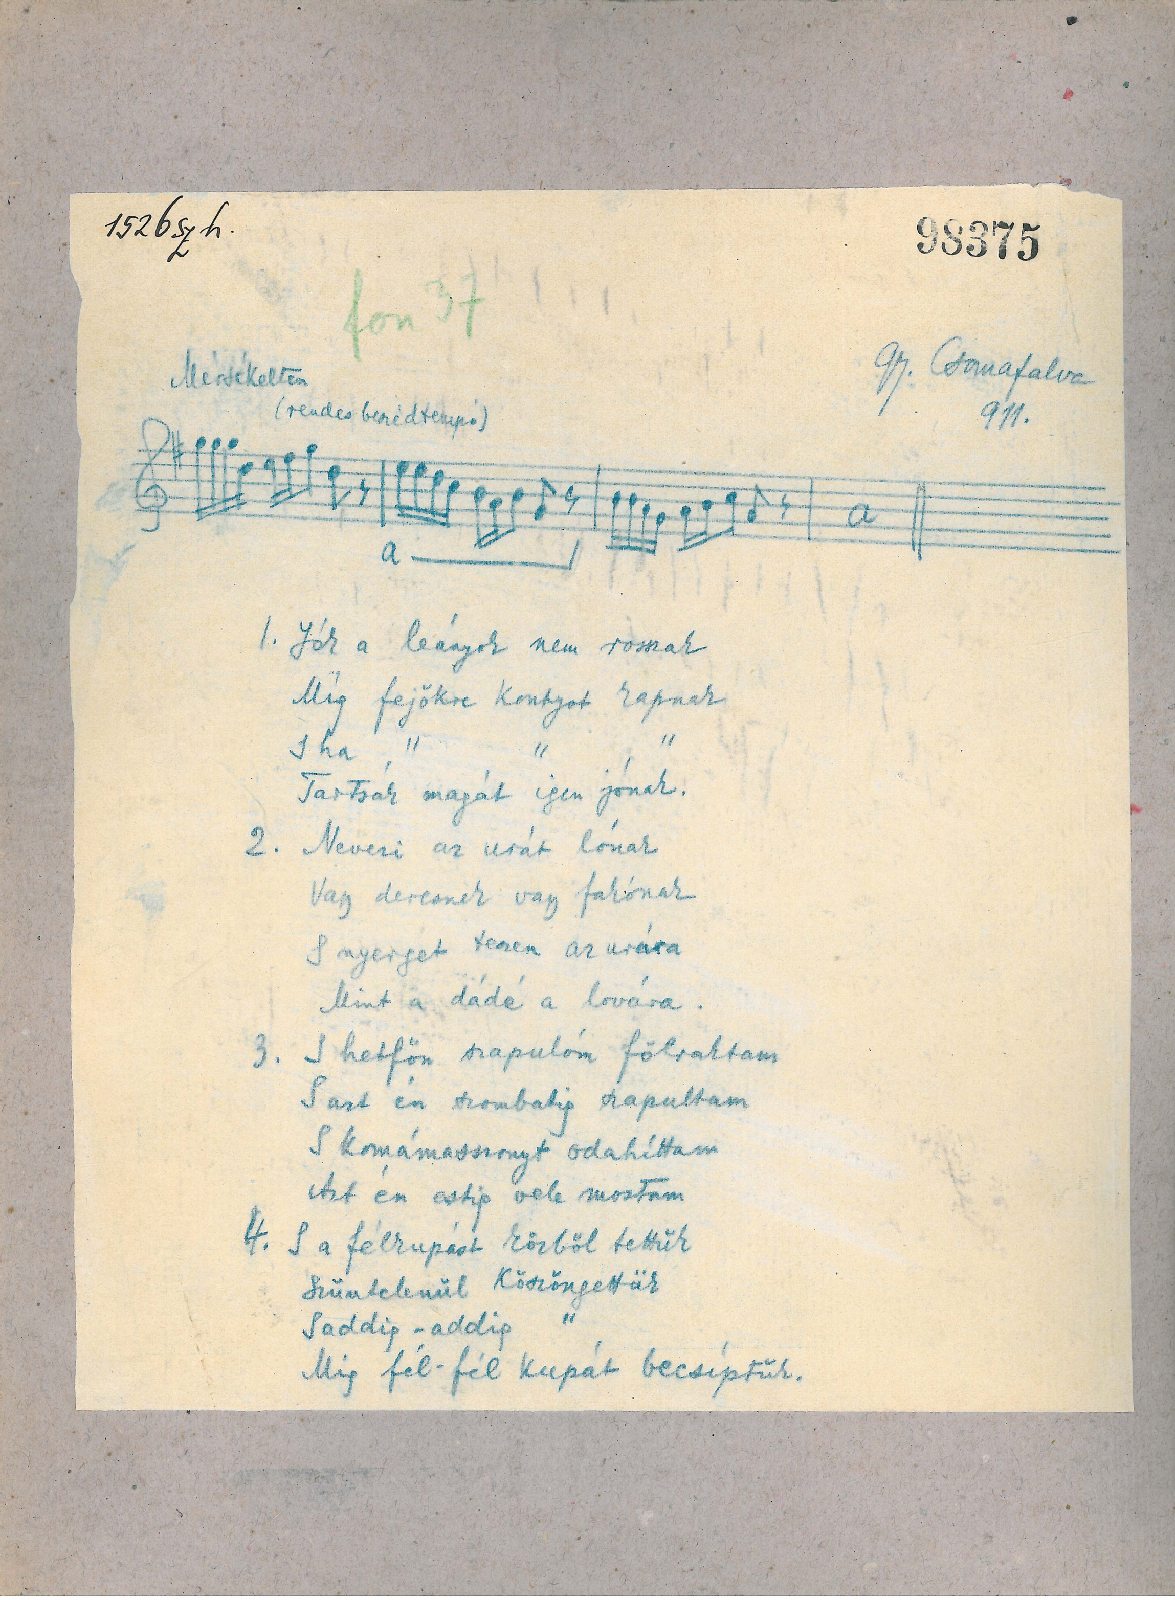 1526 sz h.
98375
fon 37
Mérsékelten
Gy. Csomafalva
(rendes beszédtempó)
911.
a
a
1. Jók a leányok nem rosszak
Míg fejőkre kontyot kapnak
S ha " " "
Tartsák magát igen jónak.
2. Nevezi az urát lónak
Vagy deresnek vagy fakónak
S nyerget teszen az urára
Mint a dádé a lovára.
3. S hetfőn szapulóm fölraktam
S azt én szombatig szapultam
S komámasszonyt odahíttam
Azt én estig vele mostam
4. S a félkupást közböl tettük
Szüntelenül Köszöngettük
Saddig-addig "
Míg fél-fél kupát becsíptük.